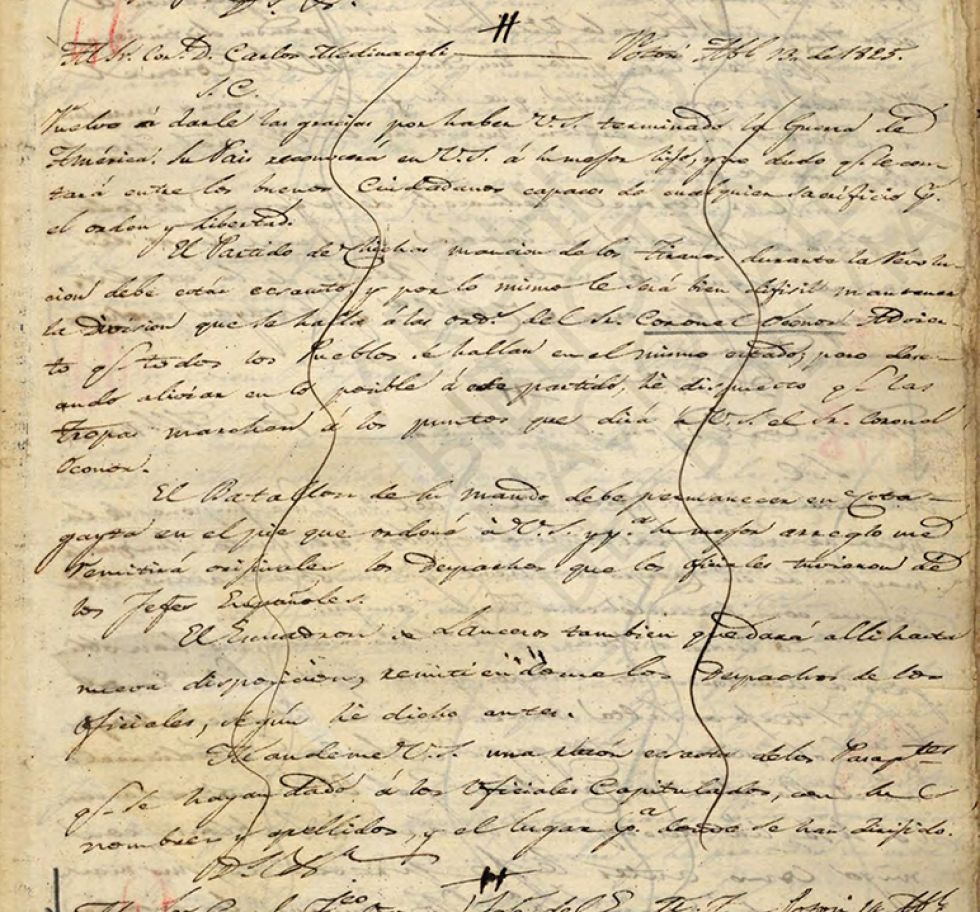 Al Sr. Cor. D. Carlos Medinaceli Potosi Abl 13. de 1825.
S. C.
Vuelvo á darle las gracias por haber V.S. terminado la Guerra de
América. Su Pais reconocerá en V.S. á su mejor hijo, y no dudo qe. le con-
tará entre los buenos Ciudadanos capaces de cualquier sacrificio pr.
el orden y libertad.
El Partido de Chichas mancion de los tiranos durante la Revolu-
cion debe estar ecsausto, y por lo mismo le será bien dificil mantener
la Division que se halla á las ords. del Sr. Coronel Oconor. Advier-
to qe. todos los Pueblos se hallan en el mismo estado; pero dese-
ando aliviar en lo posible á este partido, he dispuesto qe. las
tropas marchen á los puntos que dirá á V.S. el Sr. Coronel
Oconor.
El Batallon de su mando debe permanecer en Cota-
gayta en el pie que ordené á V.S. y pa. su mejor arreglo me
remitirá originales los Despachos que los oficiales tuvieron de
los Jefes Españoles.
El Escuadron de Lanceros tambien quedará alli hasta
nueva disposicion, remitiendome los Despachos de los
oficiales, según he dicho antes.
Mandeme V.S. una razón ecsacta de los Pasaptes
qe. se hayan dado á los Oficiales Capitulados, con su
nombre y apellidos, y el lugar pa. donde se han dirijido.